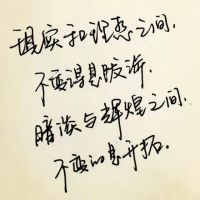 现实和理想之间,
不变的是跋涉,
暗淡与辉煌之间,
不变的是开拓.